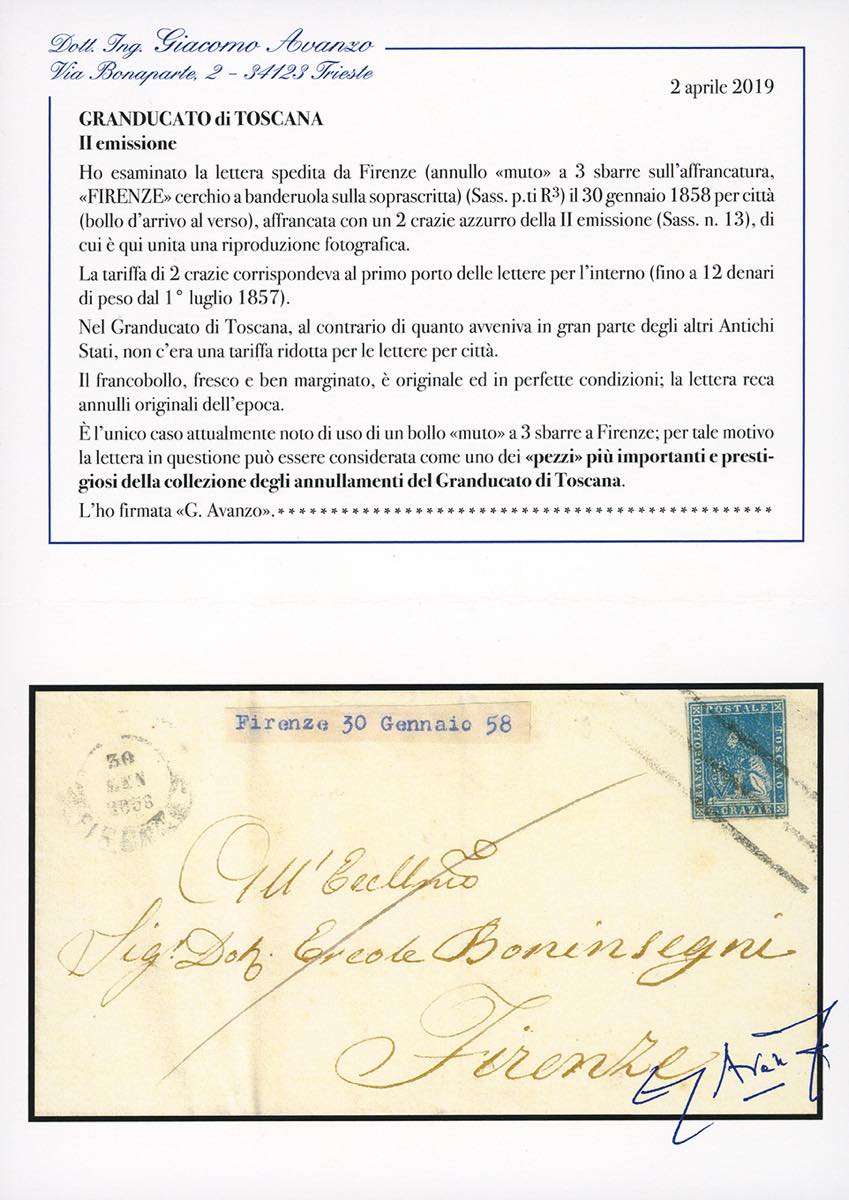 Dott. Ing. Giacomo Avanzo
Via Bonaparte, 2 – 34123 Trieste
2 aprile 2019
GRANDUCATO di TOSCANA
II emissione
Ho esaminato la lettera spedita da Firenze (annullo «muto» a 3 sbarre sull'affrancatura,
«FIRENZE» cerchio a banderuola sulla soprascritta) (Sass. p.ti R³) il 30 gennaio 1858 per città
(bollo d'arrivo al verso), affrancata con un 2 crazie azzurro della II emissione (Sass. n. 13), di
cui è qui unita una riproduzione fotografica.
La tariffa di 2 crazie corrispondeva al primo porto delle lettere per l'interno (fino a 12 denari
di peso dal 1° luglio 1857).
Nel Granducato di Toscana, al contrario di quanto avveniva in gran parte degli altri Antichi
Stati, non c'era una tariffa ridotta per le lettere per città.
Il francobollo, fresco e ben marginato, è originale ed in perfette condizioni; la lettera reca
annulli originali dell'epoca.
È l'unico caso attualmente noto di uso di un bollo «muto» a 3 sbarre a Firenze; per tale motivo
la lettera in questione può essere considerata come uno dei «pezzi» più importanti e presti-
giosi della collezione degli annullamenti del Granducato di Toscana.
L'ho firmata «G. Avanzo». * * * * * * * * * * * * * * * * * * * * * * * * * * * * * * * * * * * * * * * * * * * * * * *
Firenze 30 Gennaio 58
FRANCOBOLLO
POSTALE
TOSCANO
2 CRAZIE
30
GEN
1858
FIRENZE
All' Eccellmo
Sigr. Dott. Ercole Boninsegni
Firenze